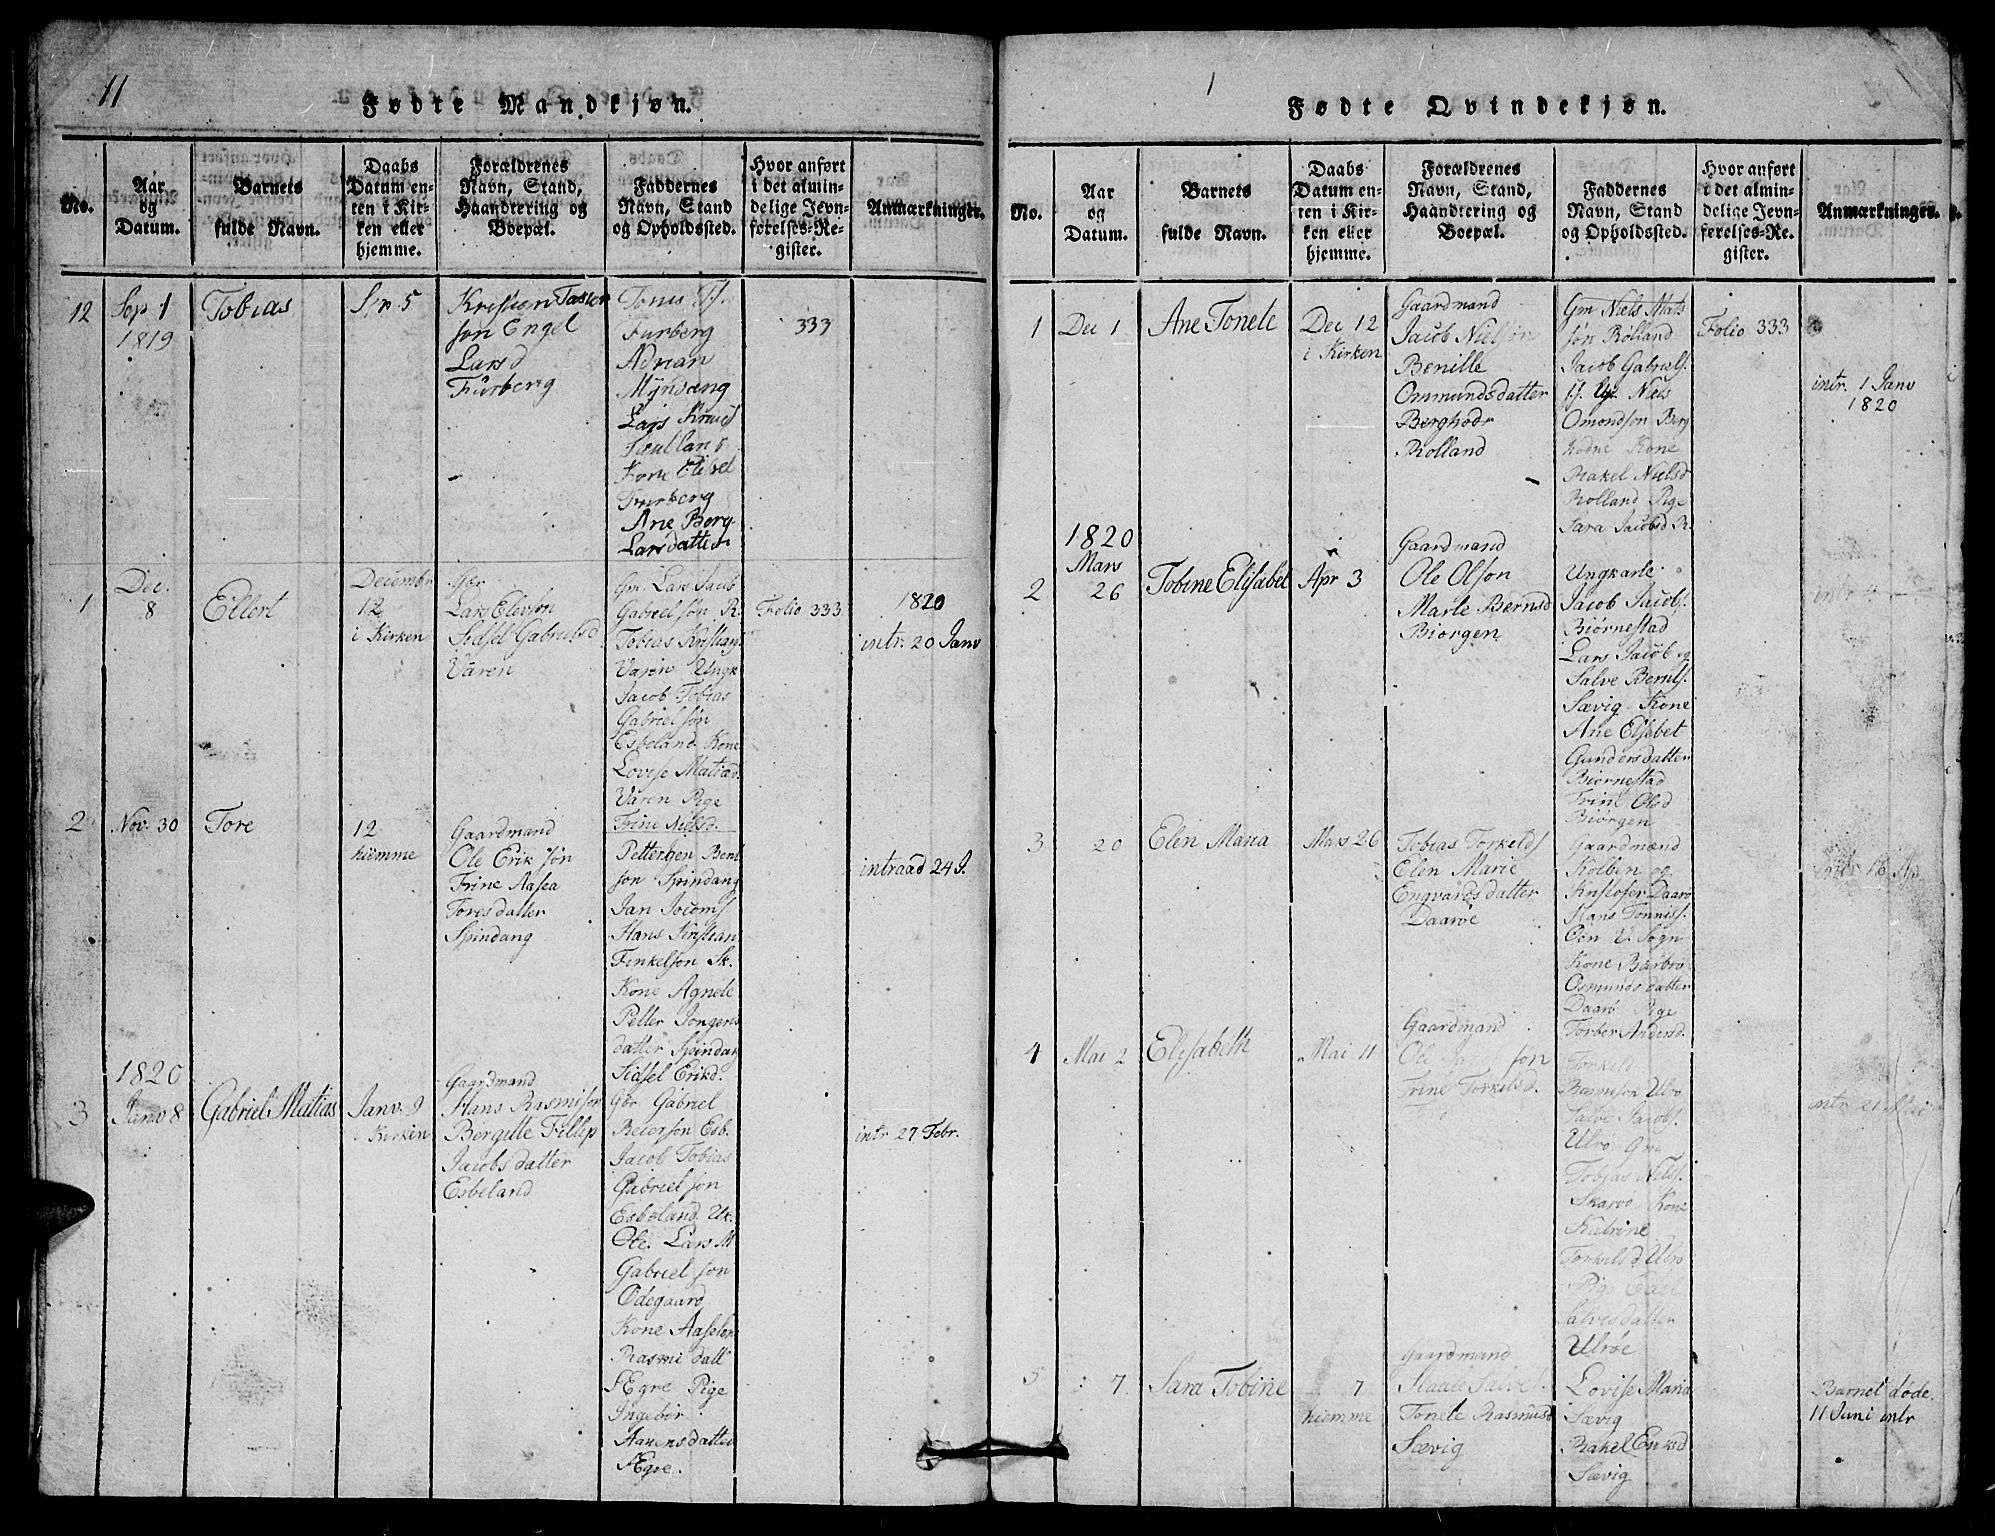 11
Fødte Mandkjøn.
No.
Aar
og
Datum.
Barnets
fulde Navn.
Daabs
Datum en-
ten i Kir-
ken eller
hjemme.
Forældrenes
Navn, Stand,
Haandtering og
Boepæl.
Faddernes
Navn, Stand
og Opholdssted.
Hvor anført
i det almin-
delige Jevn-
førelses-Re-
gister.
Anmærkninger.
12
Sep 1
1819
Tobias
Sp 5
Kristien
søn Engel
Larsd
Furberg
Tønis
Furberg
Adrian
Lars
Kone Elisel
Furberg
Ane Berg
Larsdatter
333
1
Dec.
8
Eilert
Decembr
12
i Kirken
Lars Elevsøn
Sidsel Gabrielsd
Varen
Gm. Lars Jacob
Gabrielsøn R.
Tobias Kristians
Varen Ungk
Jacob Tobias
Gabrielsøn
Esbeland Kone
Lovise Matiæd.
Varen Pige
Trine Nielsd.
Folio 333
1820
intr. 20 Janv
2
Nov. 30
Tore
12
hiemme
Gaardmand
Ole Eriksøn
Trine Aasea
Toresdatter
Spindang
Pettersen Bent
søn Spindang
Jan Jocoms
Hans Kristian
Tenkelsøn Sk.
Kone Agnete
Petter Jorgens
datter Spindan
Sidsel Erikd.
intraad 24 J.
1820
3
Janv 8
Gabriel Matias
Janv. 9
i Kirken
Gaardmand
Hans Rasmisøn
Bergitte Fillip
Jacobsdatter
Esbeland
Gbr Gabriel
Reiersøn Esb.
Jacob Tobias
Gabrielsøn
Esbeland Uk.
Ole Lars M
Gabrielsøn
Ødegaard
Kone Aaselen
Rasmi datt
Ægre Pige
Ingebør
Aanensdatter
Ægre.
intr 27 Febr.
1
Fødte Qvindekjøn.
No.
Aar
og
Datum.
Barnets
fulde Navn.
Daabs
Datum en-
ten i Kir-
ken eller
hjemme.
Forældrenes
Navn, Stand,
Haandtering og
Boepæl.
Faddernes
Navn, Stand
og Opholdssted.
Hvor anført
i det almin-
delige Jevn-
førelses-Re-
gister.
Anmærkninger.
1
Dec 1
Ane Tonele
Dec 12
i Kirken
Gaardmand
Jacob Nielsøn
Benille
Ommundsdatter
Berghodr
Rolland
Gm Niels Mats
søn Rolland
Jacob Gabriels.
Niels
Omondsøn Berg
hodne Kone
Rakel Nielsd
Rolland Pige
Sara Jacobsd R.
Folio 333
intr. 1 Janv
1820
1820
2
Mars
26
Tobine Elisabet
Apr 3
Gaardmand
Ole Olsøn
Marte Bernsd
Biorgen
Ungkarle
Jacob Jacobs.
Biørnestad
Lars Jacob og
Salve Bernts.
Sævig Kone
Ane Elsebet
Gundersdatter
Biørnestad
Trine Olsd
Biørgen
intr 4
3
20
Elen Maria
Mars 26
Tobias Torkelds
Elen Marie
Engvardsdatter
Daarøe
Gaardmænd
Kolben og
Kristofer Daarø
Hans Tonnis.
Øen V. Sogn
Kone Barbro
Osmundsdatter
Daarø Pige
Torber Andersd.
16 Ap.
4
Mai 2
Elisabeth
Mai 11
Gaardmand
Ole Jacobsøn
Trine Torkelsd.
Torkeld
Rasmisøn Ulrø
Salve Jacobs.
Ulrø Gm
Tobias Nils.
Skarvo Kone
Katrine
Torkelsd Ulrø
Pige
Salvesdatter
Ulrøe
intr 21 Mai
5
7
Sara Tobine
7
hiemme
Gaardmand
Staale Salves.
Tonele Rasmusd
Sævig
Lovise Maria
Sævig
Rakel Eriksd
Sævig
Barnet døde.
11 Juni intr